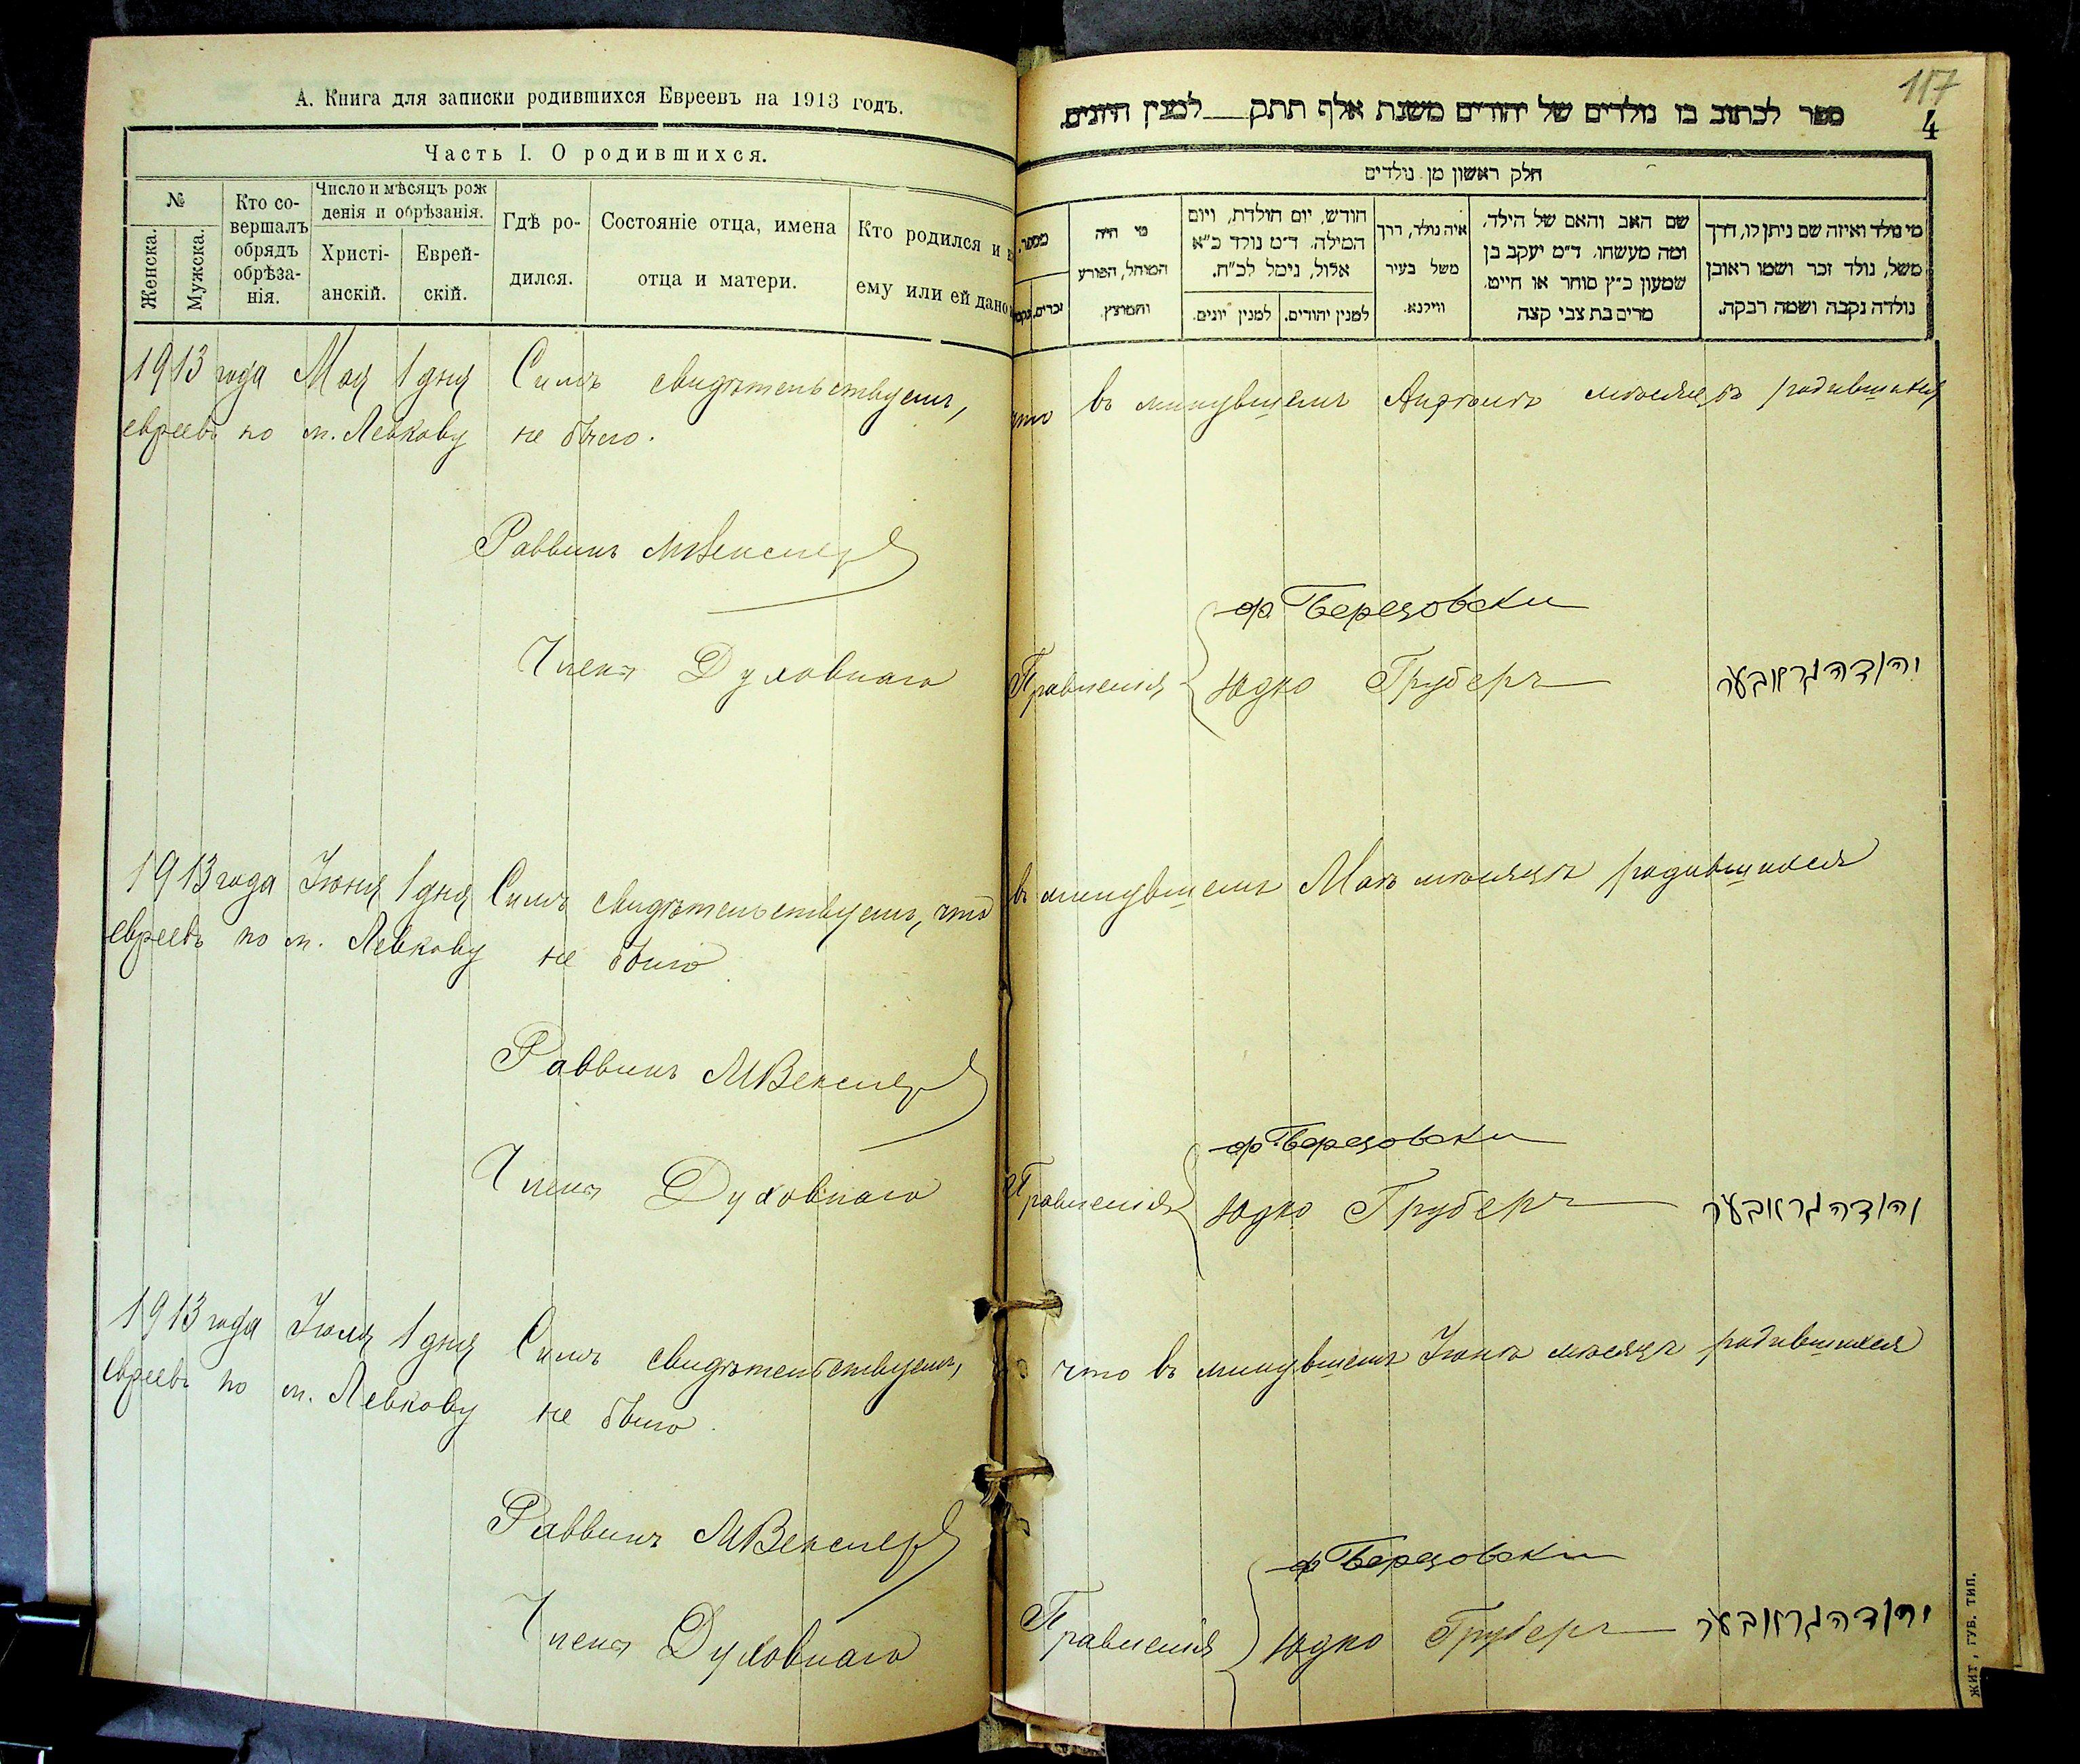 А. Книга для записки родившихся Евреевъ на 1913 годъ.
Часть I. О родившихся.
№
Женска.
Мужска.
Кто со-
вершалъ
обрядъ
обрѣза-
нія.
Число и мѣсяцъ рож
денія и обрѣзанія.
Христі-
анскій.
Еврей-
скій.
Гдѣ ро-
дился.
Состояніе отца, имена
отца и матери.
Кто родился и
ему или ей дано
117
4
ספר לכתוב בו נולדים של יהודים משנת אלף תתק למנין היונים.
חלק ראשון מן נולדים
מספר.
זכרים.
מי היה
המוהל, הפורע
והמוצץ.
חודש, יום הולדת, ויום
המילה. ד״מ נולד כ״א
אלול, נימל לכ״ח.
למנין יהודים.
למנין יונים.
איה נולד, דרך
משל בעיר
ווילנא.
שם האב והאם של הילד,
ומה מעשהו. ד״מ יעקב בן
שמעון כ״ץ סוחר או חייט.
מרים בת צבי קצה
מי נולד ואיזה שם ניתן לו, דרך
משל, נולד זכר ושמו ראובן
נולדה נקבה ושמה רבקה.
1913 года Мая 1 дня Симъ свидѣтельствуемъ, что въ минувшемъ Апрѣлѣ мѣсяцѣ родившихся
евреевъ по м. Левкову не было.
Раввинъ МВекслеръ
ф Березовски
Члены Духовнаго Правленія Юдко Груберъ יהודה גרובער
1913 года Іюня 1 дня Симъ свидѣтельствуемъ, что въ минувшемъ Маѣ мѣсяцѣ родившихся
евреевъ по м. Левкову не было
Раввинъ МВекслеръ
ф Березовски
Члены Духовнаго Правленія Юдко Груберъ יהודה גרובער
1913 года Іюля 1 дня Симъ свидѣтельствуемъ, что въ минувшемъ Іюнѣ мѣсяцѣ родившихся
евреевъ по м. Левкову не было.
Раввинъ МВекслеръ
ф Березовски
Члены Духовнаго Правленія Юдко Груберъ יהודה גרובער
ЖИТ, ГУБ. ТИП.